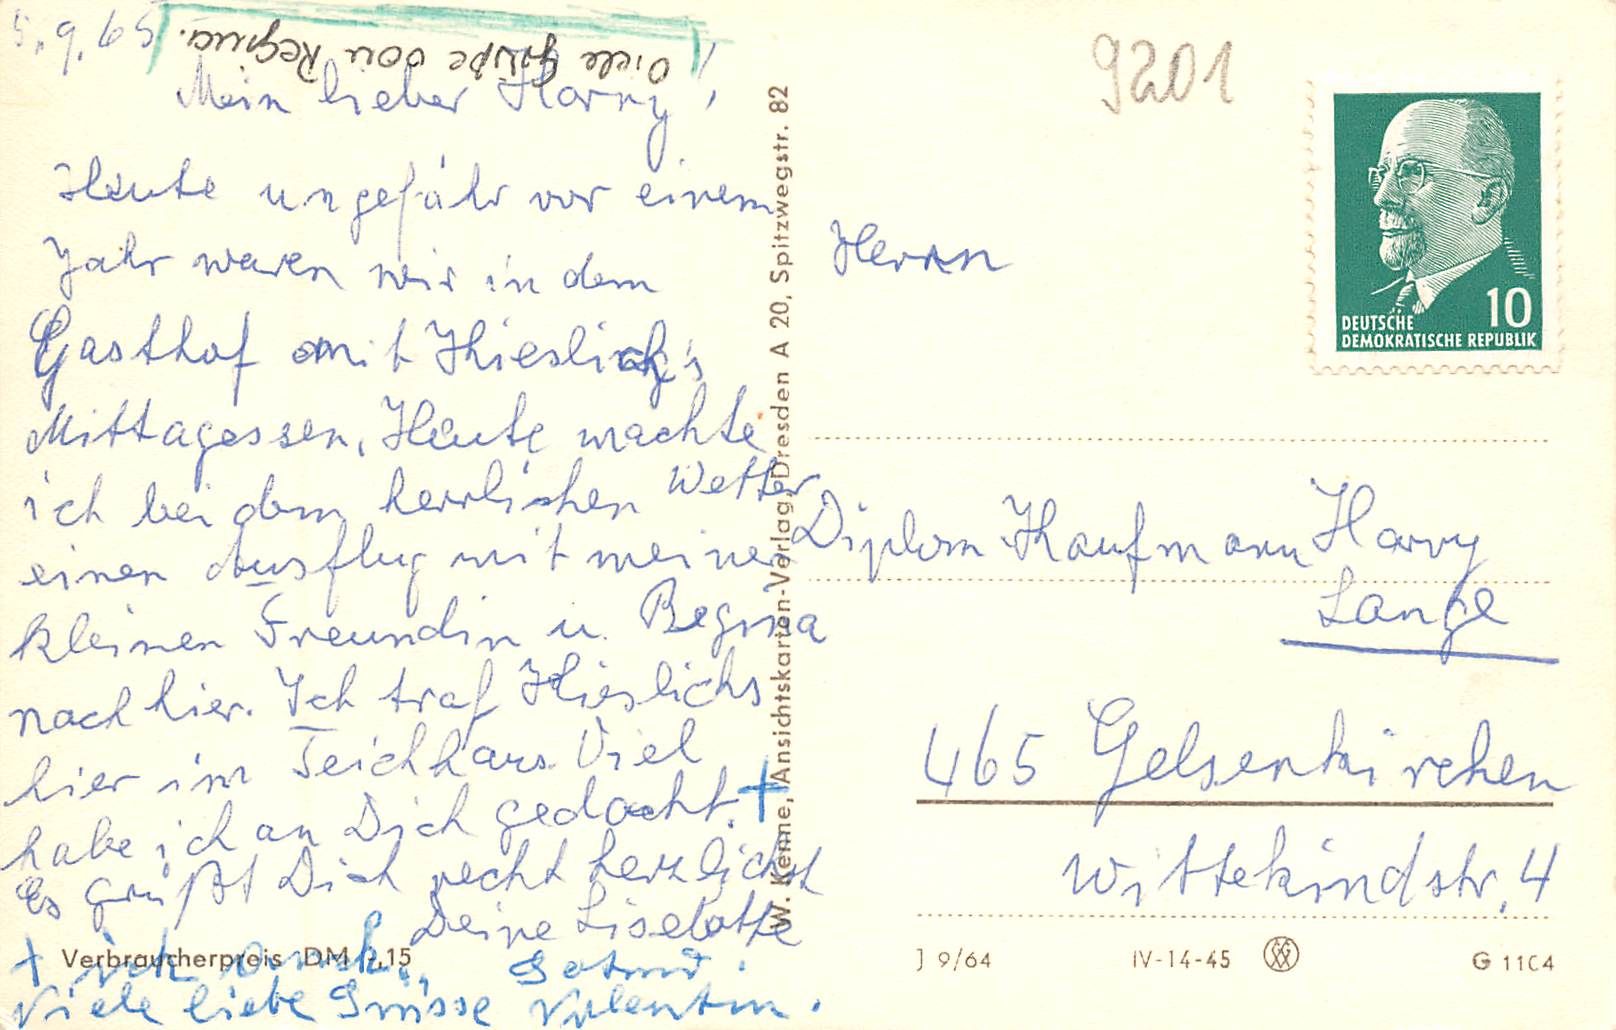 5.9.65
Viele Grüße von Regina.
Mein lieber Harry!
Heute ungefähr vor einem
Jahr waren wir in dem
Gasthof mit Kieslich's
Mittagessen. Heute machte
ich bei dem herrlichen Wetter
einen Ausflug mit meiner
kleinen Freundin u. Regina
nach hier. Ich traf Kieslichs
hier im Teichhaus. Viel
habe ich an Dich gedacht. +
Es grüßt Dich recht herzlichst
Deine Liselotte
+ ich auch,
Viele liebe Grüsse Valentin.
Verbraucherpreis DM -,15
W. Kenne, Ansichtskarten-Verlag, Dresden A 20, Spitzwegstr. 82
9201
DEUTSCHE
DEMOKRATISCHE REPUBLIK
10
Herrn
Diplom-Kaufmann Harry
Lange
465 Gelsenkirchen
Wittekindstr. 4
J 9/64
IV-14-45
G 11C4